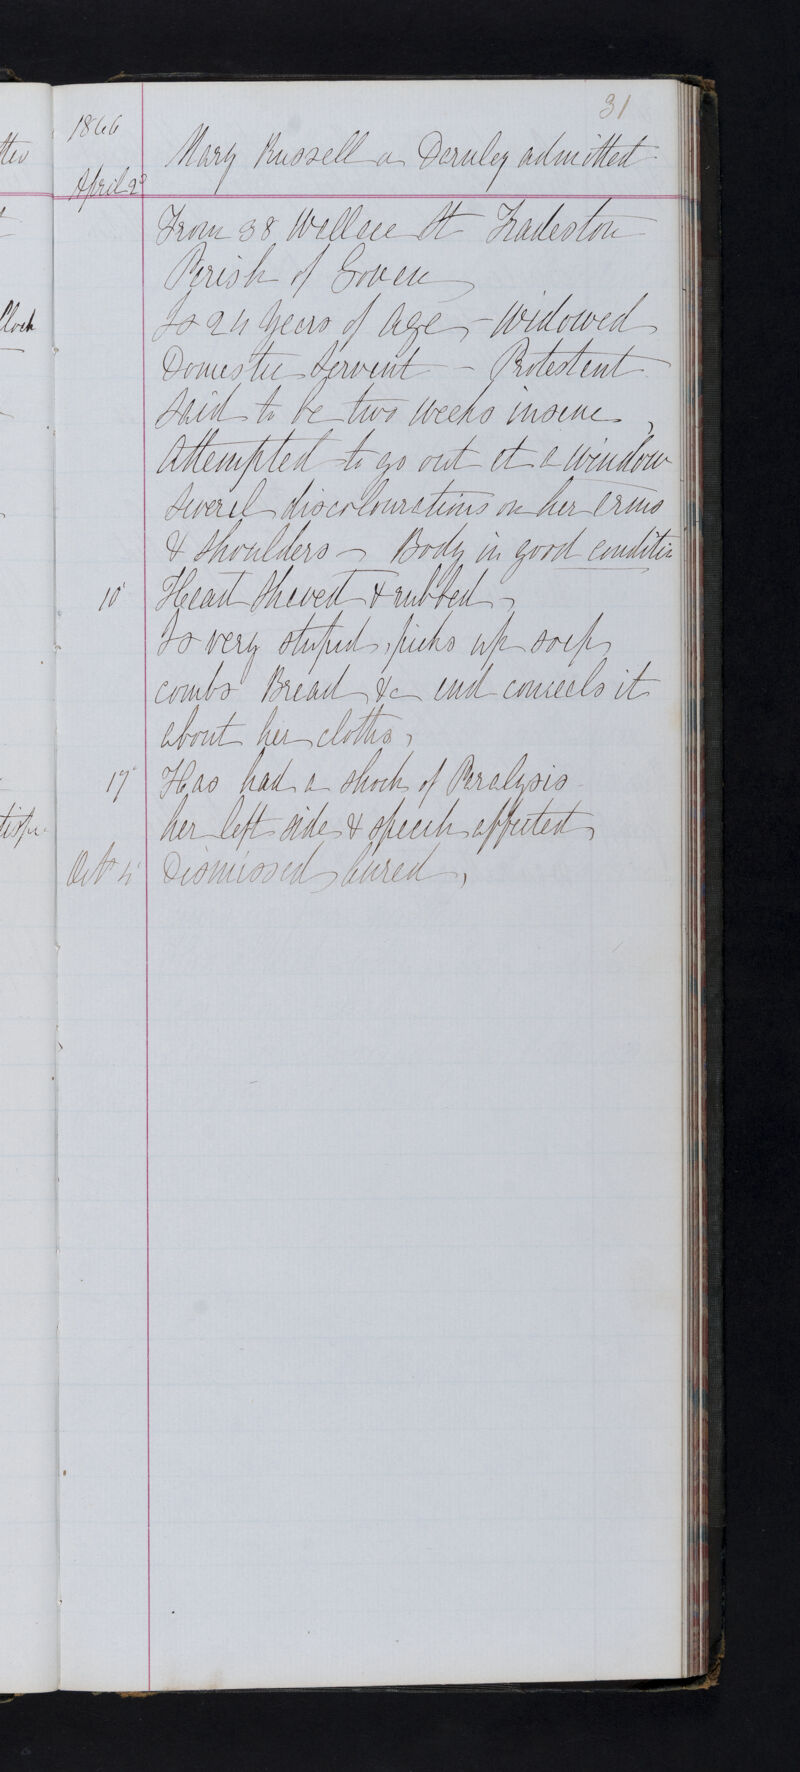 31
1866
Mary Russell or Dernley admitted
April 2d
From 38 Wallace St Tradeston
Parish of Govan
Is 24 years of Age, - Widowed
Domestic Servant - Protestant
Said to be two weeks insane,
Attempted to go out at a window
Several discolourations on her arms
& shoulders - Body in good condition
10 Head Shaved & rubbed,
Is very stupid, picks up soap
combs Bread &c and conceals it
about her cloths,
17 Has had a shock of Paralysis
her left side & speech affected,
Oct 4 Dismissed Cured,